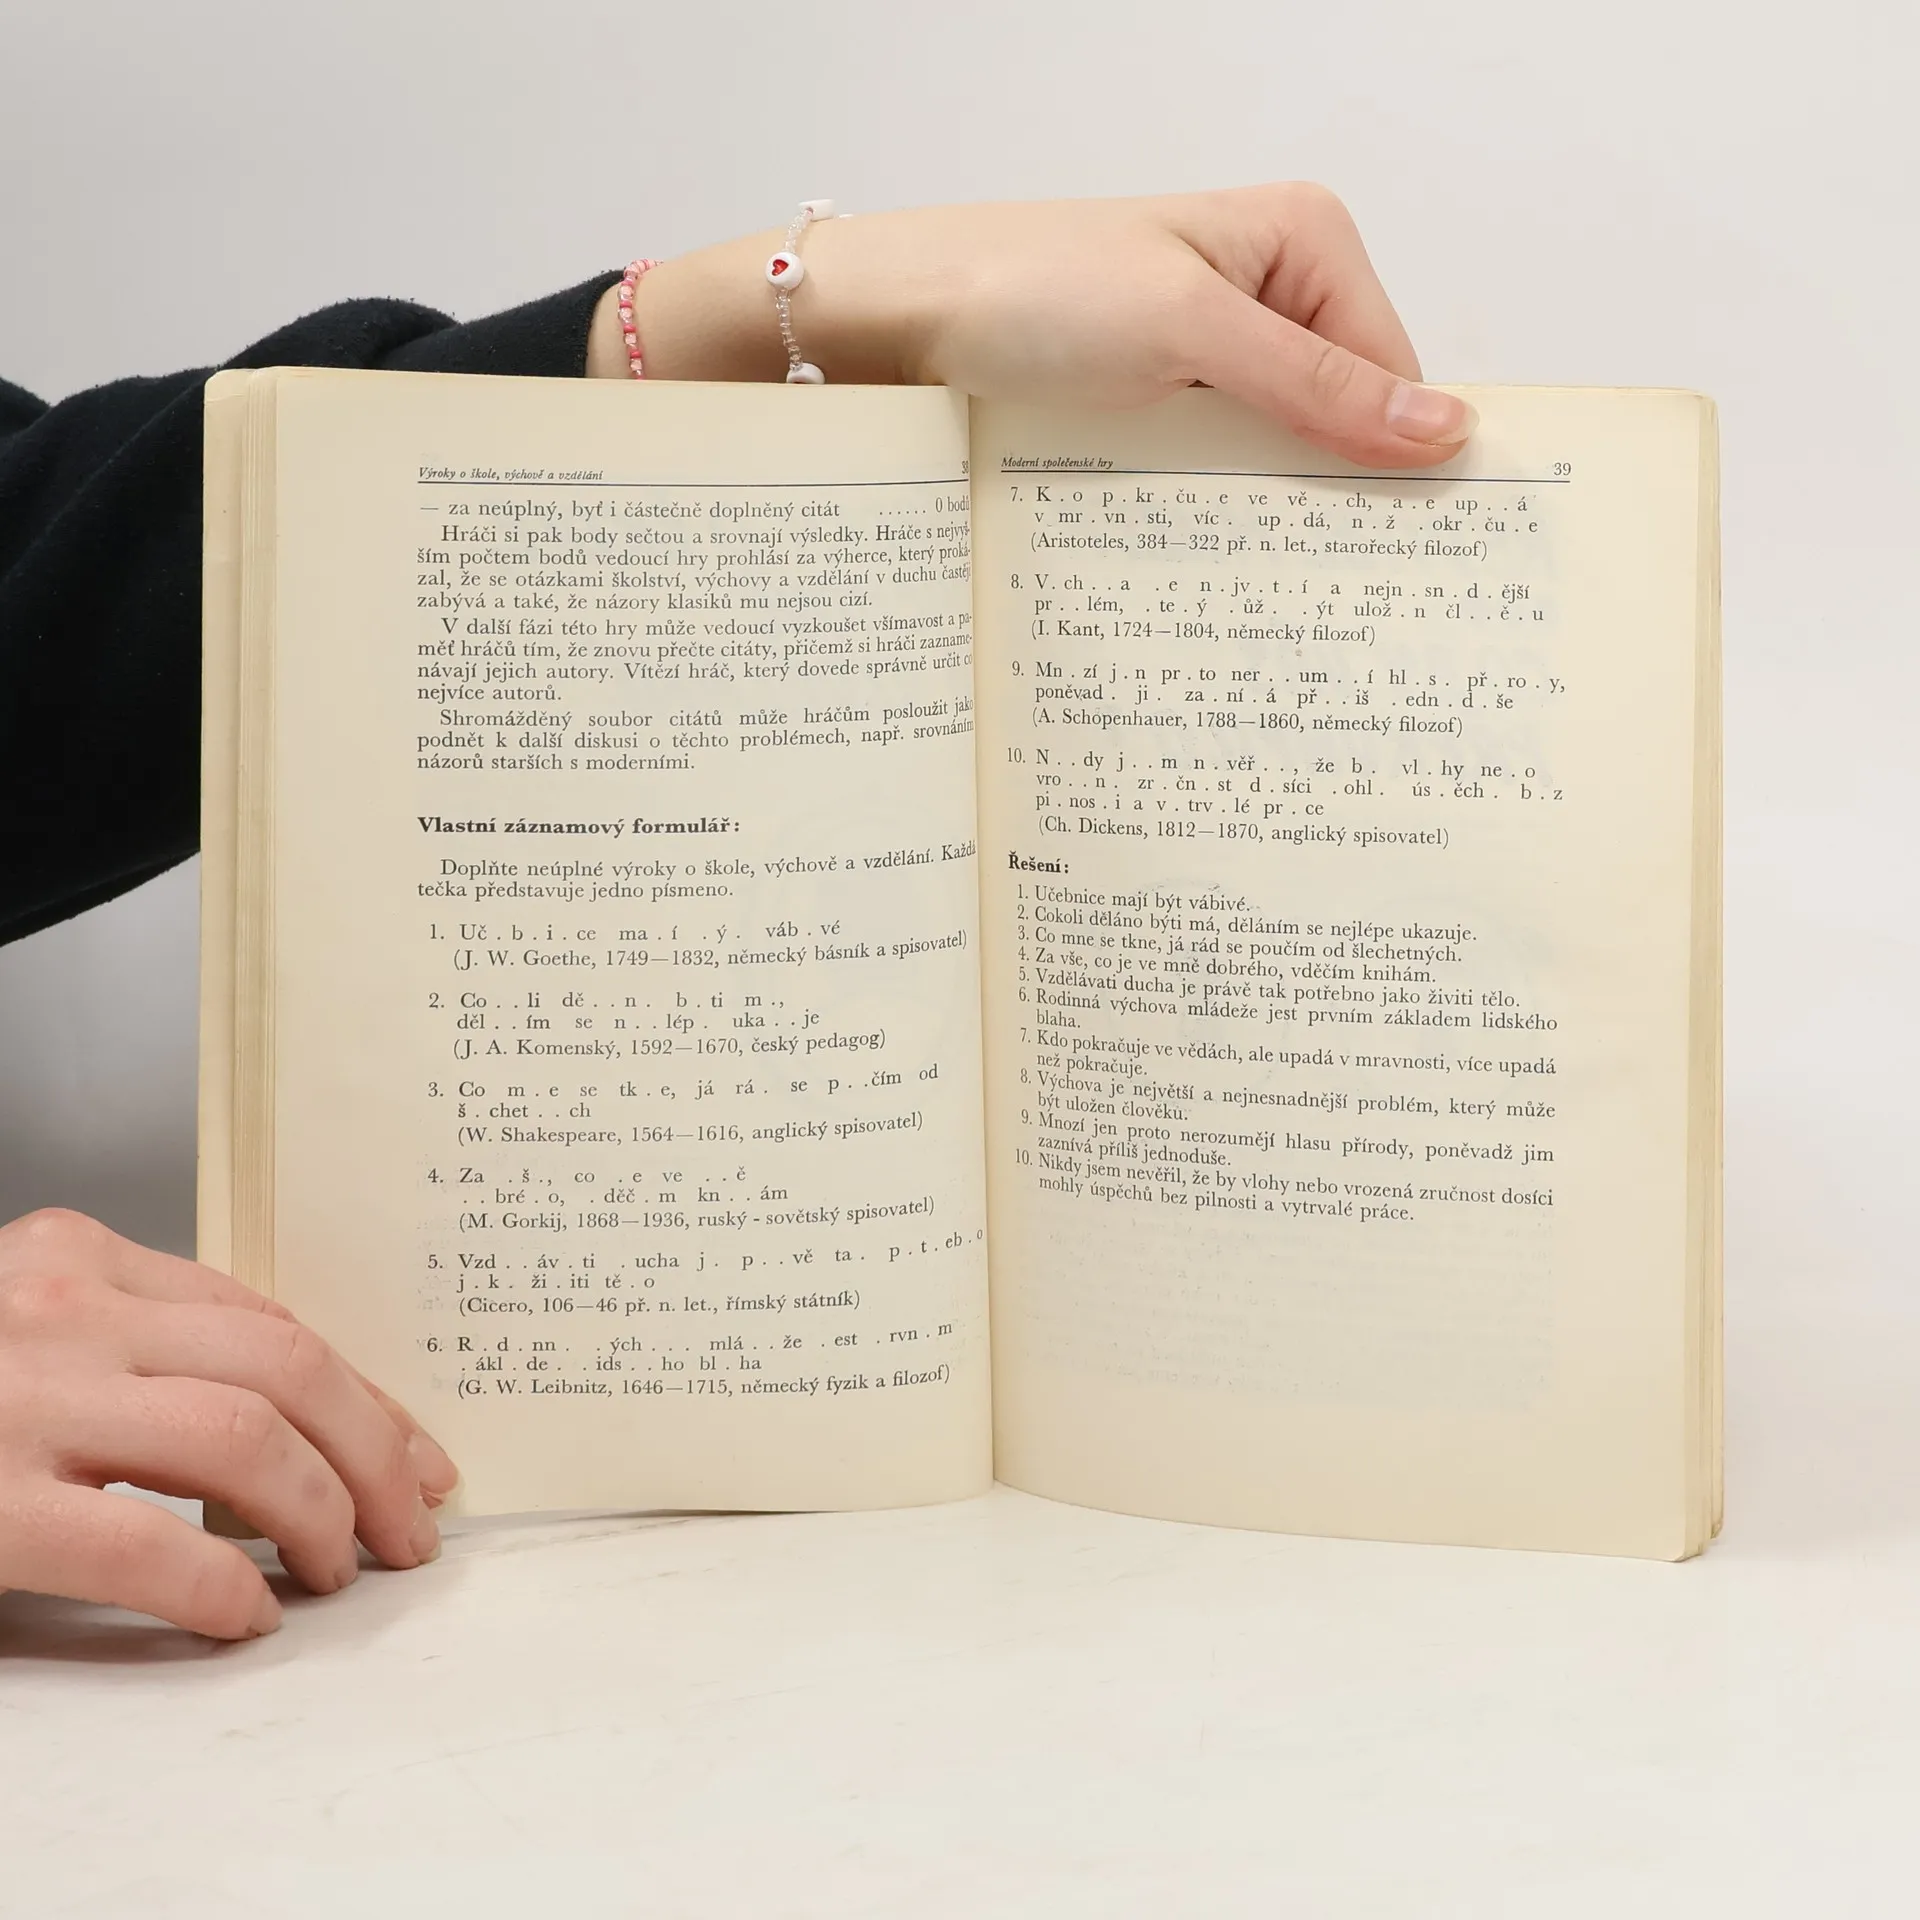 Výroky o škole, výchově a vzdělání 38
— za neúplný, byť i částečně doplněný citát ...... 0 bodů
Hráči si pak body sečtou a srovnají výsledky. Hráče s nejvyš-
ším počtem bodů vedoucí hry prohlásí za výherce, který proká-
zal, že se otázkami školství, výchovy a vzdělání v duchu častěji
zabývá a také, že názory klasiků mu nejsou cizí.
V další fázi této hry může vedoucí vyzkoušet všímavost a pa-
měť hráčů tím, že znovu přečte citáty, přičemž si hráči zazname-
návají jejich autory. Vítězí hráč, který dovede správně určit co
nejvíce autorů.
Shromážděný soubor citátů může hráčům posloužit jako
podnět k další diskusi o těchto problémech, např. srovnáním
názorů starších s moderními.
Vlastní záznamový formulář:
Doplňte neúplné výroky o škole, výchově a vzdělání. Každá
tečka představuje jedno písmeno.
1. Uč . b . i . ce ma . í . ý . váb . vé
(J. W. Goethe, 1749—1832, německý básník a spisovatel)
2. Co . . li dě . . n . b . ti m .,
děl . . ím se n . . lép . uka . . je
(J. A. Komenský, 1592—1670, český pedagog)
3. Co m . e se tk . e, já rá . se p . . čím od
š . chet . . ch
(W. Shakespeare, 1564—1616, anglický spisovatel)
4. Za . š ., co . e ve . . ě
. . bré . o, . děč . m kn . . ám
(M. Gorkij, 1868—1936, ruský - sovětský spisovatel)
5. Vzd . . áv . ti . ucha j . p . . vě ta . p . t . eb . o
j . k . ži . iti tě . o
(Cicero, 106—46 př. n. let., římský státník)
6. R . d . nn . . ých . . . mlá . . že . est . rvn . m
. ákl . de . . ids . . ho bl . ha
(G. W. Leibnitz, 1646—1715, německý fyzik a filozof)
Moderní společenské hry 39
7. K . o p . kr . ču . e ve vě . . ch, a . e up . . á
v mr . vn . sti, víc . up . dá, n . ž . okr . ču . e
(Aristoteles, 384—322 př. n. let., starořecký filozof)
8. V . ch . . a . e n . jv . t . í a nejn . sn . d . ější
pr . . lém, . te . ý . ůž . . ýt ulož . n čl . . ě . u
(I. Kant, 1724—1804, německý filozof)
9. Mn . zí j . n pr . to ner . . um . . í hl . s . př . ro . y,
poněvad . ji . za . ní . á př . . iš . edn . d . še
(A. Schopenhauer, 1788—1860, německý filozof)
10. N . . dy j . . m n . věř . . , že b . vl . hy ne . o
vro . . n . zr . čn . st d . síci . ohl . ús . ěch . b . z
pi . nos . i a v . trv . lé pr . ce
(Ch. Dickens, 1812—1870, anglický spisovatel)
Řešení:
1. Učebnice mají být vábivé.
2. Cokoli děláno býti má, děláním se nejlépe ukazuje.
3. Co mne se tkne, já rád se poučím od šlechetných.
4. Za vše, co je ve mně dobrého, vděčím knihám.
5. Vzdělávati ducha je právě tak potřebno jako živiti tělo.
6. Rodinná výchova mládeže jest prvním základem lidského
blaha.
7. Kdo pokračuje ve vědách, ale upadá v mravnosti, více upadá
než pokračuje.
8. Výchova je největší a nejnesnadnější problém, který může
být uložen člověku.
9. Mnozí jen proto nerozumějí hlasu přírody, poněvadž jim
zaznívá příliš jednoduše.
10. Nikdy jsem nevěřil, že by vlohy nebo vrozená zručnost dosíci
mohly úspěchů bez pilnosti a vytrvalé práce.